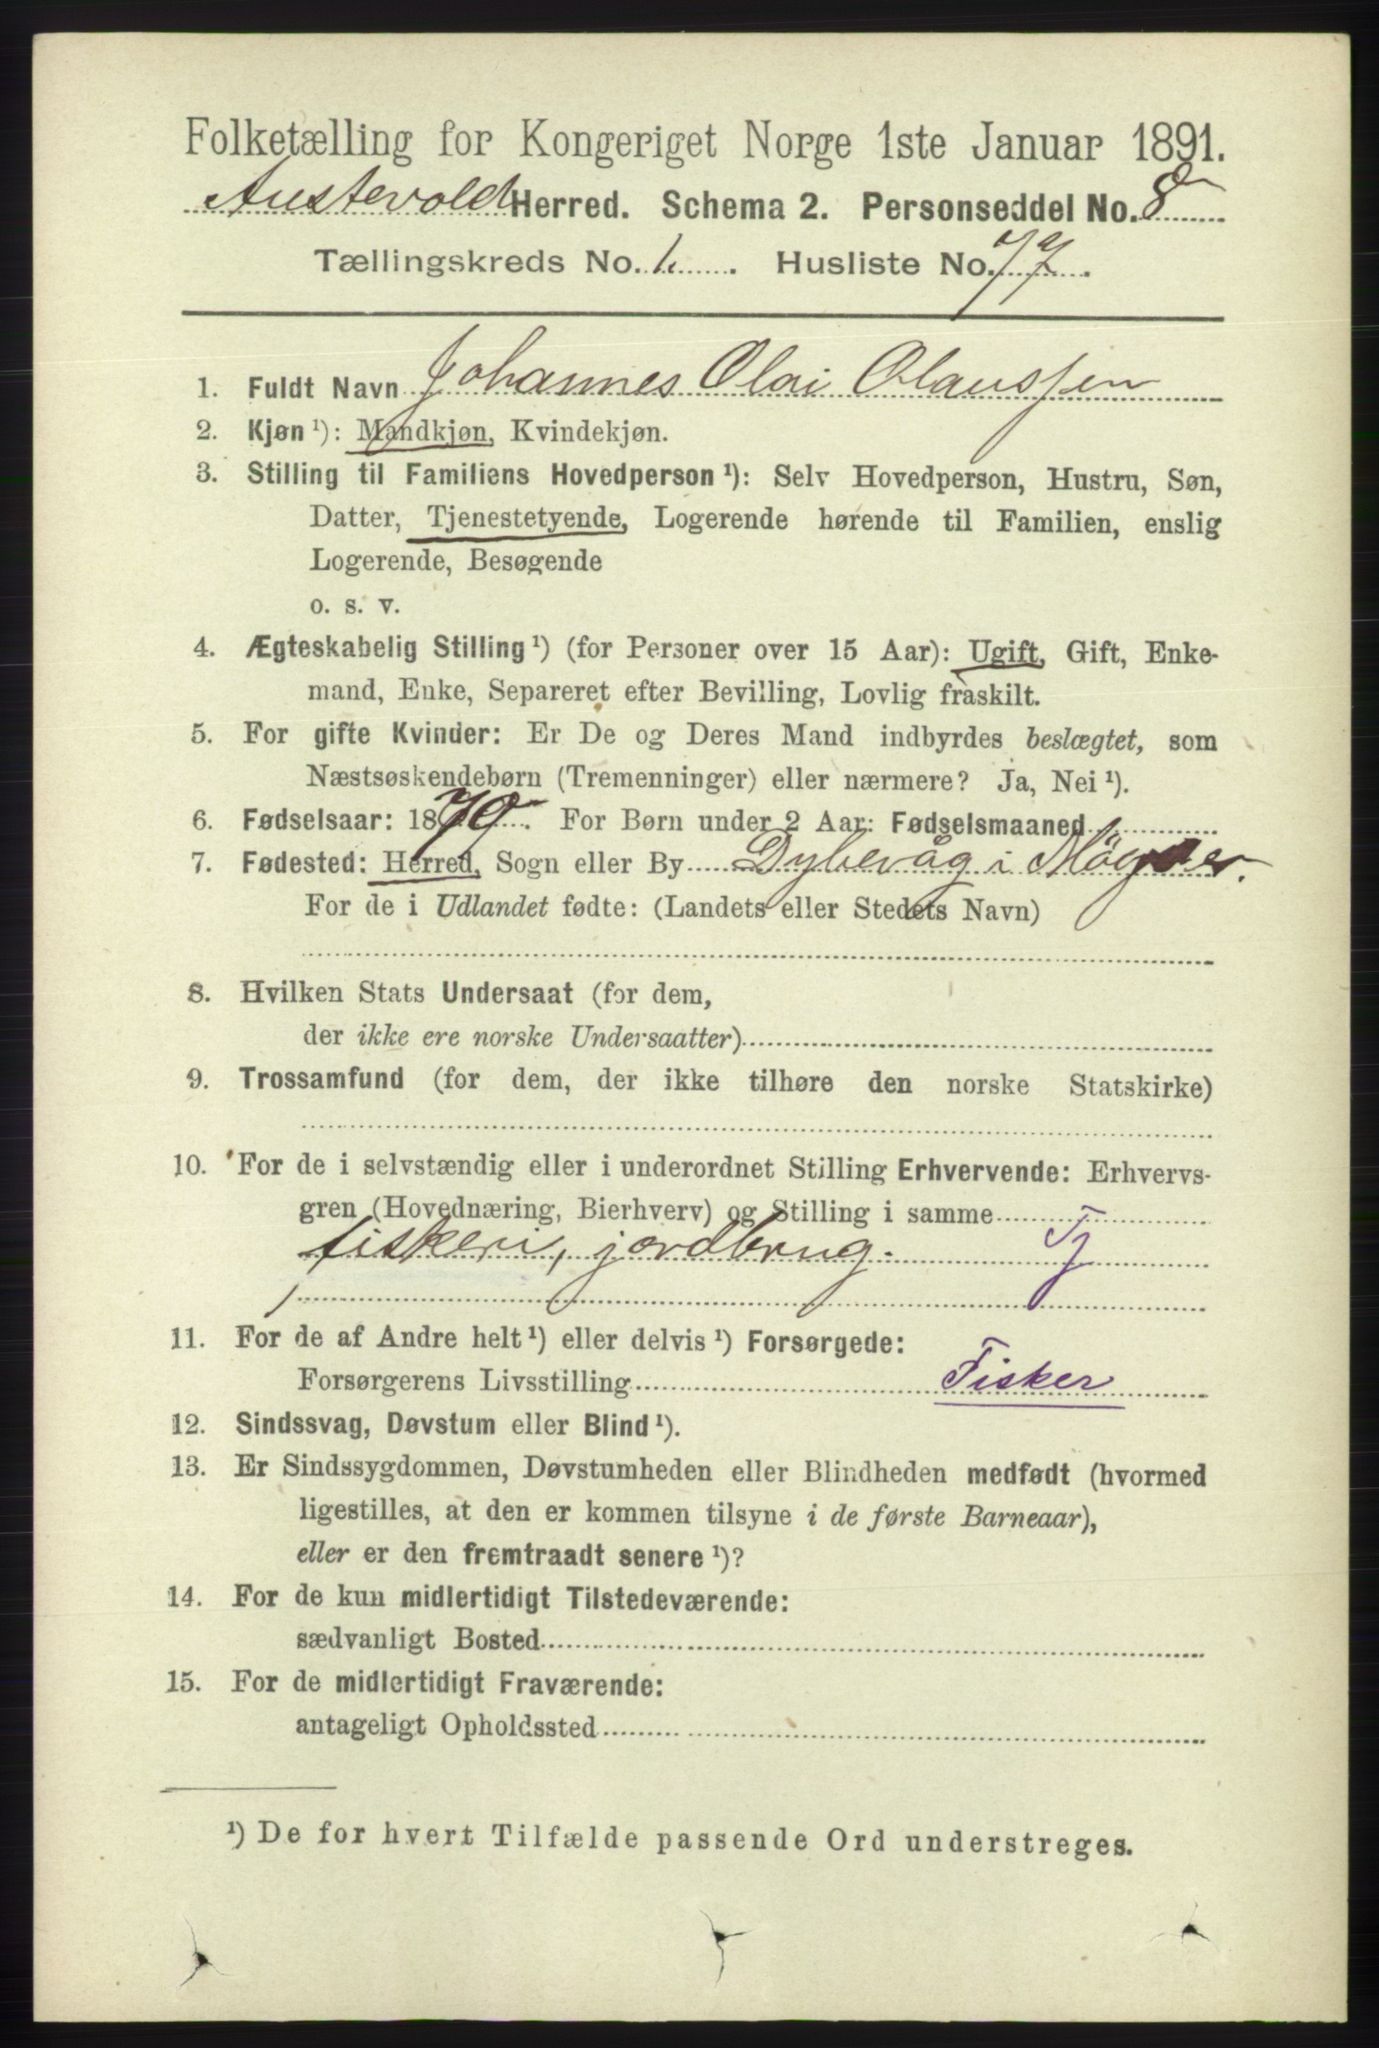 Folketælling for Kongeriget Norge 1ste Januar 1891.
Austevold Herred. Schema 2. Personseddel No. 8
Tællingskreds No. 1. Husliste No. 77.
1. Fuldt Navn Johannes Olai Olaussen
2. Kjøn¹): Mandkjøn, Kvindekjøn.
3. Stilling til Familiens Hovedperson¹): Selv Hovedperson, Hustru, Søn,
Datter, Tjenestetyende, Logerende hørende til Familien, enslig
Logerende, Besøgende
o. s. v.
4. Ægteskabelig Stilling¹) (for Personer over 15 Aar): Ugift, Gift, Enke-
mand, Enke, Separeret efter Bevilling, Lovlig fraskilt.
5. For gifte Kvinder: Er De og Deres Mand indbyrdes beslægtet, som
Næstsøskendebørn (Tremenninger) eller nærmere? Ja, Nei¹).
6. Fødselsaar: 1879. For Børn under 2 Aar: Fødselsmaaned
7. Fødested: Herred, Sogn eller By Dybevåg i Møgster.
For de i Udlandet fødte: (Landets eller Stedets Navn)
8. Hvilken Stats Undersaat (for dem,
der ikke ere norske Undersaatter)
9. Trossamfund (for dem, der ikke tilhøre den norske Statskirke)
10. For de i selvstændig eller i underordnet Stilling Erhvervende: Erhvervs-
gren (Hovednæring, Bierhverv) og Stilling i samme
fiskeri, jordbrug. Tj
11. For de af Andre helt¹) eller delvis¹) Forsørgede:
Forsørgerens Livsstilling Fisker
12. Sindssvag, Døvstum eller Blind¹).
13. Er Sindssygdommen, Døvstumheden eller Blindheden medfødt (hvormed
ligestilles, at den er kommen tilsyne i de første Barneaar),
eller er den fremtraadt senere¹)?
14. For de kun midlertidigt Tilstedeværende:
sædvanligt Bosted
15. For de midlertidigt Fraværende:
antageligt Opholdssted
¹) De for hvert Tilfælde passende Ord understreges.